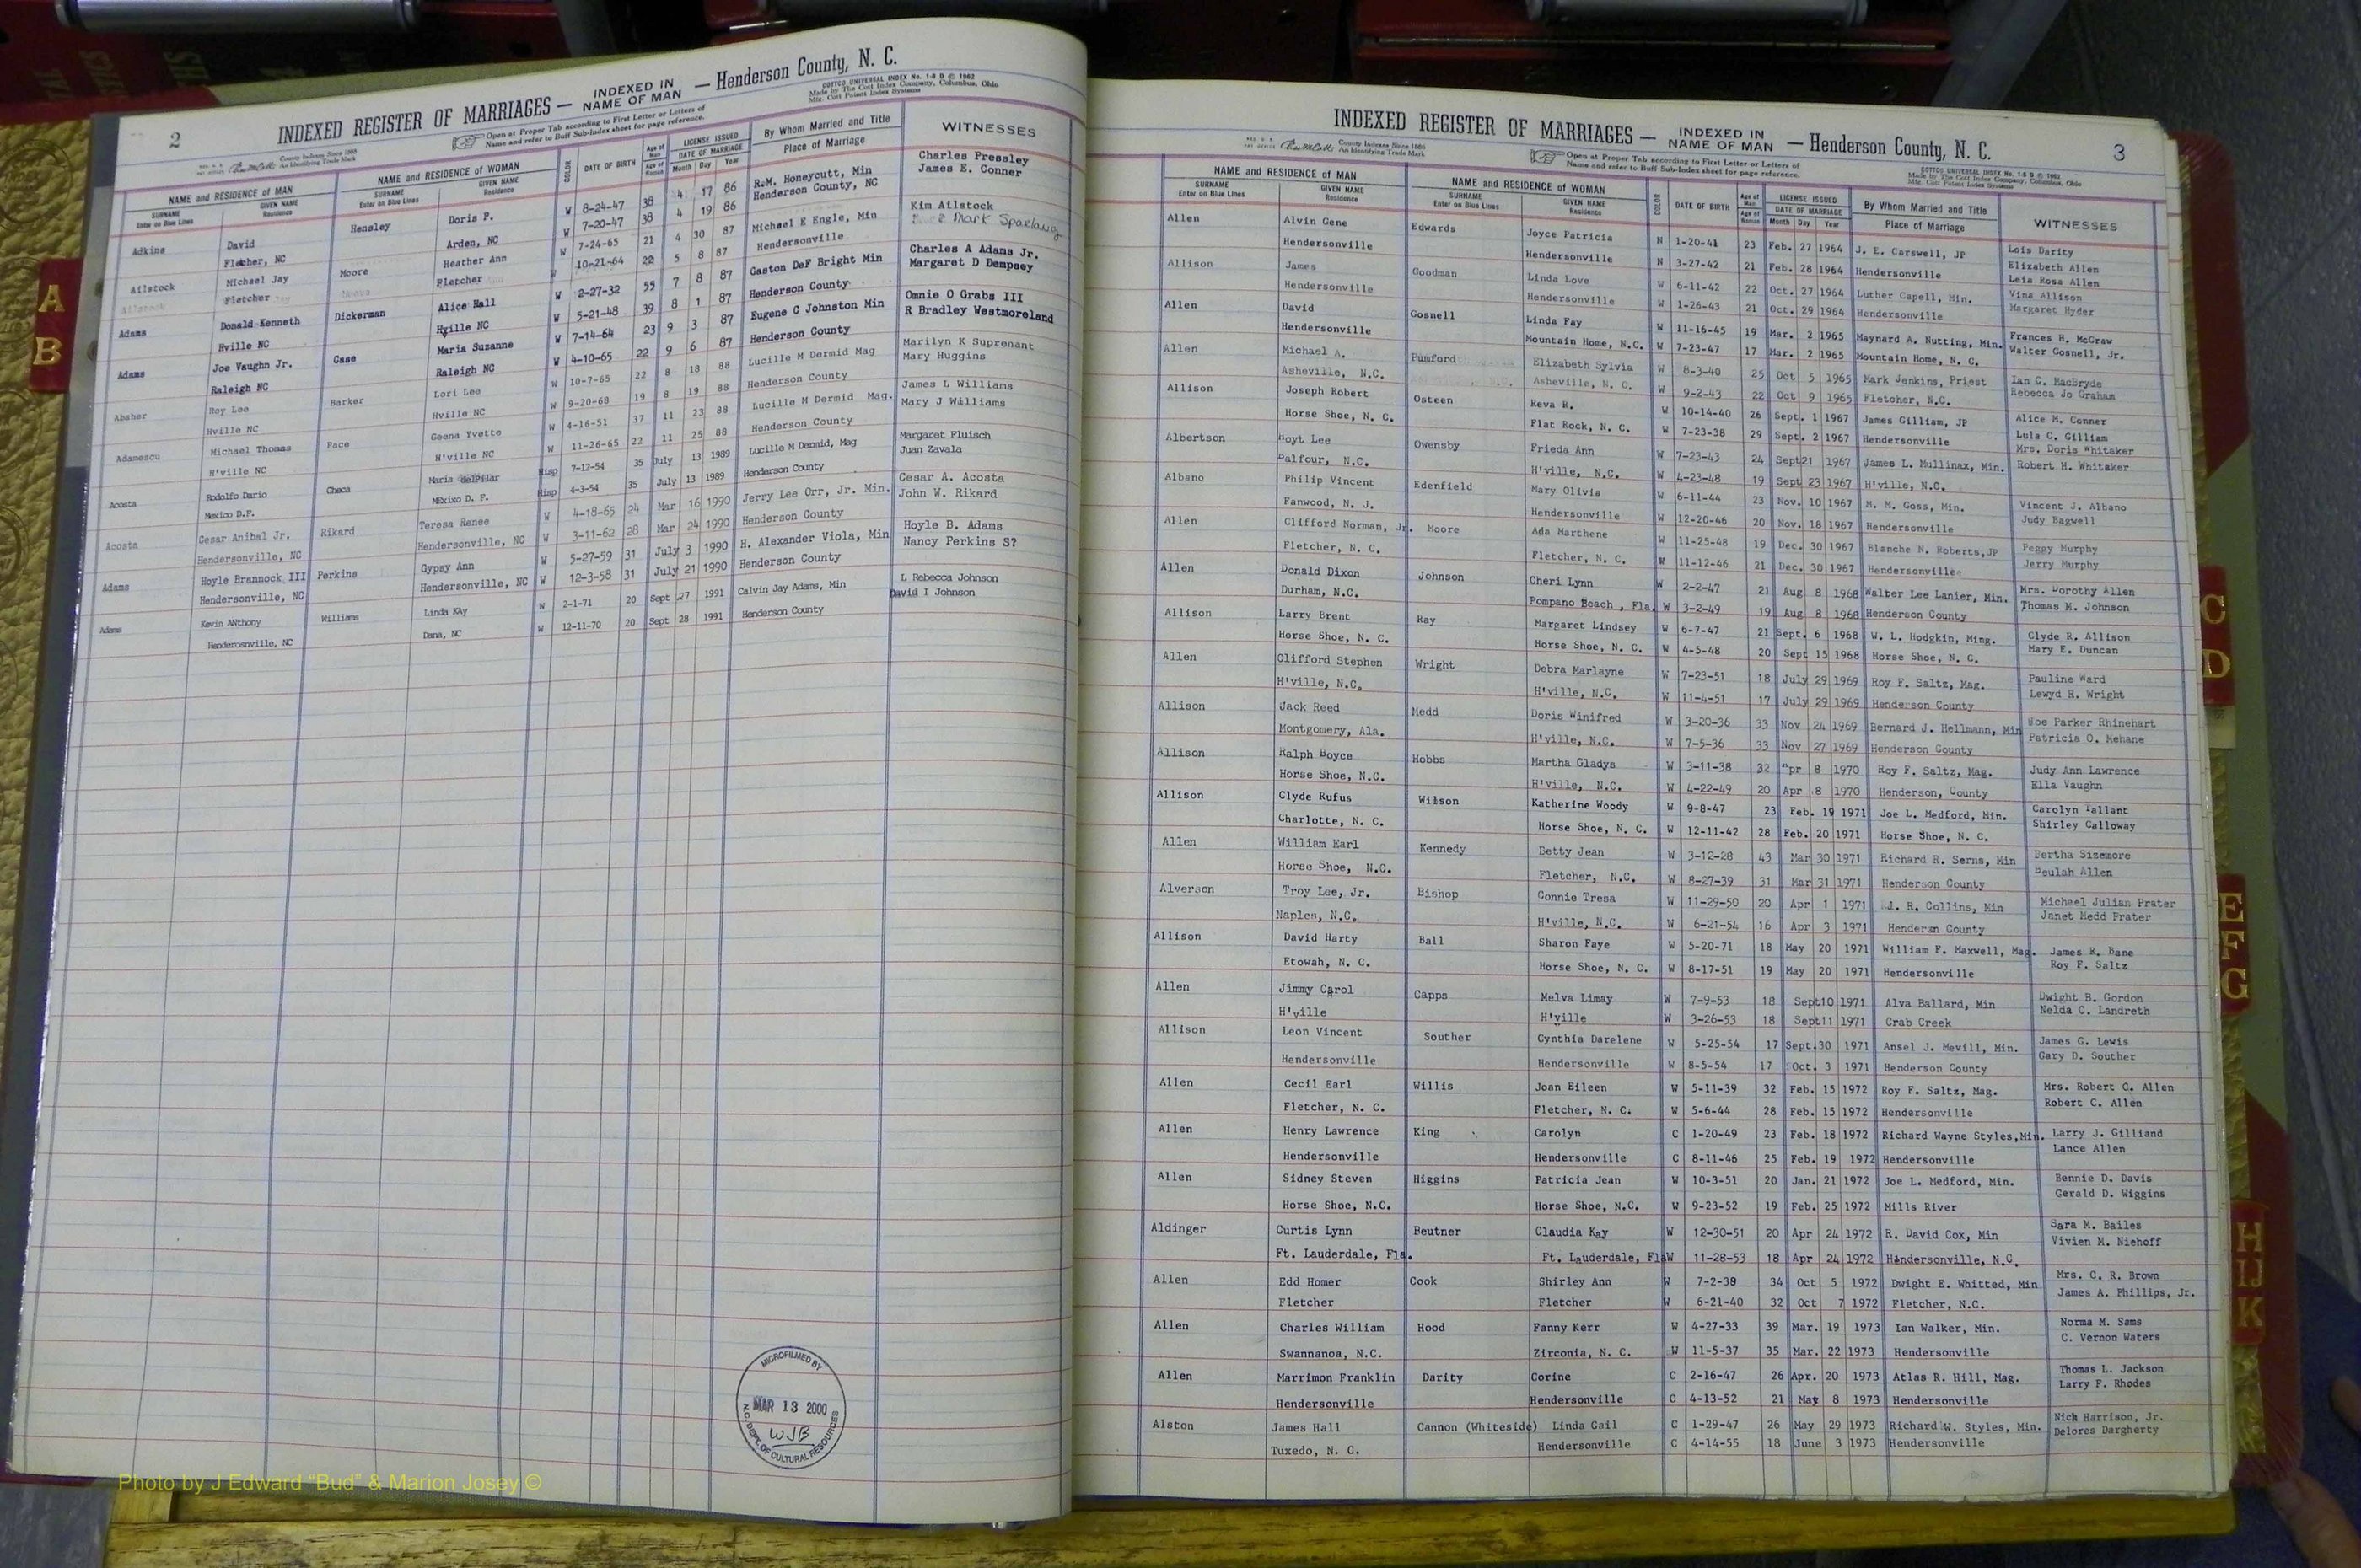 2
INDEXED REGISTER OF MARRIAGES — INDEXED IN NAME OF MAN — Henderson County, N. C.
Open at Proper Tab according to First Letter or Letters of
Name and refer to Buff Sub-Index sheet for page reference.
COTTCO UNIVERSAL INDEX No. 1-9 D © 1962
Made by The Cott Index Company, Columbus, Ohio
Mfg. Cott Patent Index Systems
County Indexes Since 1888
An Identifying Trade Mark
NAME and RESIDENCE of MAN NAME and RESIDENCE of WOMAN COLOR DATE OF BIRTH Age of Man LICENSE ISSUED By Whom Married and Title WITNESSES
SURNAME GIVEN NAME SURNAME GIVEN NAME Age of Woman DATE OF MARRIAGE Place of Marriage
Enter on Blue Lines Residence Enter on Blue Lines Residence Month Day Year
Adkins David Hensley Doris P. W 8-24-47 38 4 17 86 R.M. Honeycutt, Min Charles Pressley
Fletcher, NC Arden, NC W 7-20-47 38 4 19 86 Henderson County, NC James E. Conner
Ailstock Michael Jay Moore Heather Ann W 7-24-65 21 4 30 87 Michael E Engle, Min Kim Ailstock
Fletcher Fletcher W 10-21-64 22 5 8 87 Hendersonville Mark Sparlang
Adams Donald Kenneth Dickerman Alice Hall W 2-27-32 55 7 8 87 Gaston DeF Bright Min Charles A Adams Jr.
Hville NC Hville NC W 5-21-48 39 8 1 87 Henderson County Margaret D Dempsey
Adams Joe Vaughn Jr. Case Maria Suzanne W 7-14-64 23 9 3 87 Eugene C Johnston Min Omnie O Grabs III
Raleigh NC Raleigh NC W 4-10-65 22 9 6 87 Henderson County R Bradley Westmoreland
Absher Roy Lee Barker Lori Lee W 10-7-65 22 8 18 88 Lucille M Dermid Mag Marilyn K Suprenant
Hville NC Hville NC W 9-20-68 19 8 19 88 Henderson County Mary Huggins
Adamescu Michael Thomas Pace Geena Yvette W 4-16-51 37 11 23 88 Lucille M Dermid Mag. James L Williams
H'ville NC H'ville NC W 11-26-65 22 11 25 88 Henderson County Mary J Williams
Acosta Rodolfo Dario Checa Maria delPilar Hisp 7-12-54 35 July 13 1989 Lucille M Dermid, Mag Margaret Fluisch
Mexico D.F. MExixo D. F. Hisp 4-3-54 35 July 13 1989 Henderson County Juan Zavala
Acosta Cesar Anibal Jr. Rikard Teresa Renee W 4-18-65 24 Mar 16 1990 Jerry Lee Orr, Jr. Min. Cesar A. Acosta
Hendersonville, NC Hendersonville, NC W 3-11-62 28 Mar 24 1990 Henderson County John W. Rikard
Adams Hoyle Brannock III Perkins Gypsy Ann W 5-27-59 31 July 3 1990 H. Alexander Viola, Min Hoyle B. Adams
Hendersonville, NC Hendersonville, NC W 12-3-58 31 July 21 1990 Henderson County Nancy Perkins S?
Adams Kevin ANthony Williams Linda KAy W 2-1-71 20 Sept 27 1991 Calvin Jay Adams, Min L Rebecca Johnson
Henderosnville, NC Dana, NC W 12-11-70 20 Sept 28 1991 Henderson County David I Johnson
MICROFILMED BY
MAR 13 2000
WJB
N.C. DEPT. OF CULTURAL RESOURCES
Photo by J Edward “Bud” & Marion Josey ©
A
B
INDEXED REGISTER OF MARRIAGES — INDEXED IN NAME OF MAN — Henderson County, N. C. 3
Open at Proper Tab according to First Letter or Letters of
Name and refer to Buff Sub-Index sheet for page reference.
COTTCO UNIVERSAL INDEX No. 1-9 D © 1962
Made by The Cott Index Company, Columbus, Ohio
Mfg. Cott Patent Index Systems
County Indexes Since 1888
An Identifying Trade Mark
NAME and RESIDENCE of MAN NAME and RESIDENCE of WOMAN COLOR DATE OF BIRTH Age of Man LICENSE ISSUED By Whom Married and Title WITNESSES
SURNAME GIVEN NAME SURNAME GIVEN NAME Age of Woman DATE OF MARRIAGE Place of Marriage
Enter on Blue Lines Residence Enter on Blue Lines Residence Month Day Year
Allen Alvin Gene Edwards Joyce Patricia N 1-20-41 23 Feb. 27 1964 J. E. Carswell, JP Lois Darity
Hendersonville Hendersonville N 3-27-42 21 Feb. 28 1964 Hendersonville Elizabeth Allen
Leia Rosa Allen
Allison James Goodman Linda Love W 6-11-42 22 Oct. 27 1964 Luther Capell, Min. Vina Allison
Hendersonville Hendersonville W 1-26-43 21 Oct. 29 1964 Hendersonville Margaret Hyder
Allen David Gosnell Linda Fay W 11-16-45 19 Mar. 2 1965 Maynard A. Nutting, Min. Frances H. McGraw
Hendersonville Mountain Home, N.C. W 7-23-47 17 Mar. 2 1965 Mountain Home, N. C. Walter Gosnell, Jr.
Allen Michael A. Pumford Elizabeth Sylvia W 8-3-40 25 Oct 5 1965 Mark Jenkins, Priest Ian C. MacBryde
Asheville, N.C. Asheville, N. C. W 9-2-43 22 Oct 9 1965 Fletcher, N.C. Rebecca Jo Graham
Allison Joseph Robert Osteen Reva R. W 10-14-40 26 Sept. 1 1967 James Gilliam, JP Alice M. Conner
Horse Shoe, N. C. Flat Rock, N. C. W 7-23-38 29 Sept. 2 1967 Hendersonville Lula C. Gilliam
Albertson Hoyt Lee Owensby Frieda Ann W 7-23-43 24 Sept21 1967 James L. Mullinax, Min. Mrs. Doris Whitaker
Balfour, N.C. H'ville, N.C. W 4-23-48 19 Sept 23 1967 H'ville, N.C. Robert H. Whitaker
Albano Philip Vincent Edenfield Mary Olivia W 6-11-44 23 Nov. 10 1967 M. M. Goss, Min. Vincent J. Albano
Fanwood, N. J. Hendersonville W 12-20-46 20 Nov. 18 1967 Hendersonville Judy Bagwell
Allen Clifford Norman, Jr. Moore Ada Marthene W 11-25-48 19 Dec. 30 1967 Blanche N. Roberts, JP Peggy Murphy
Fletcher, N. C. Fletcher, N. C. W 11-12-46 21 Dec. 30 1967 Hendersonville Jerry Murphy
Allen Donald Dixon Johnson Cheri Lynn W 2-2-47 21 Aug 8 1968 Walter Lee Lanier, Min. Mrs. Dorothy Allen
Durham, N.C. Pompano Beach , Fla. W 3-2-49 19 Aug 8 1968 Henderson County Thomas M. Johnson
Allison Larry Brent Ray Margaret Lindsey W 6-7-47 21 Sept. 6 1968 W. L. Hodgkin, Ming. Clyde R. Allison
Horse Shoe, N. C. Horse Shoe, N. C. W 4-5-48 20 Sept 15 1968 Horse Shoe, N. C. Mary E. Duncan
Allen Clifford Stephen Wright Debra Marlayne W 7-23-51 18 July 29 1969 Roy F. Saltz, Mag. Pauline Ward
H'ville, N.C. H'ville, N.C. W 11-4-51 17 July 29 1969 Henderson County Lewyd R. Wright
Allison Jack Reed Medd Doris Winifred W 3-20-36 33 Nov 24 1969 Bernard J. Hellmann, Min Woe Parker Rhinehart
Montgomery, Ala. H'ville, N.C. W 7-5-36 33 Nov 27 1969 Henderson County Patricia O. Mehane
Allison Ralph Boyce Hobbs Martha Gladys W 3-11-38 32 Apr 8 1970 Roy F. Saltz, Mag. Judy Ann Lawrence
Horse Shoe, N.C. H'ville, N.C. W 4-22-49 20 Apr 8 1970 Henderson, County Ella Vaughn
Allison Clyde Rufus Wilson Katherine Woody W 9-8-47 23 Feb. 19 1971 Joe L. Medford, Min. Carolyn Tallant
Charlotte, N. C. Horse Shoe, N. C. W 12-11-42 28 Feb. 20 1971 Horse Shoe, N. C. Shirley Calloway
Allen William Earl Kennedy Betty Jean W 3-12-28 43 Mar 30 1971 Richard R. Serns, Min Bertha Sizemore
Horse Shoe, N.C. Fletcher, N.C. W 8-27-39 31 Mar 31 1971 Henderson County Beulah Allen
Alverson Troy Lee, Jr. Bishop Connie Tresa W 11-29-50 20 Apr 1 1971 R. Collins, Min Michael Julian Prater
Naples, N.C. H'ville, N.C. W 6-21-54 16 Apr 3 1971 Henderson County Janet Medd Prater
Allison David Harty Ball Sharon Faye W 5-20-71 18 May 20 1971 William F. Maxwell, Mag. James R. Bane
Etowah, N. C. Horse Shoe, N. C. W 8-17-51 19 May 20 1971 Hendersonville Roy F. Saltz
Allen Jimmy Carol Capps Melva Limay W 7-9-53 18 Sept10 1971 Alva Ballard, Min Dwight B. Gordon
H'ville H'ville W 3-26-53 18 Sept11 1971 Crab Creek Nelda C. Landreth
Allison Leon Vincent Souther Cynthia Darelene W 5-25-54 17 Sept.30 1971 Ansel J. Mevill, Min. James G. Lewis
Hendersonville Hendersonville W 8-5-54 17 Oct. 3 1971 Henderson County Gary D. Souther
Allen Cecil Earl Willis Joan Eileen W 5-11-39 32 Feb. 15 1972 Roy F. Saltz, Mag. Mrs. Robert C. Allen
Fletcher, N. C. Fletcher, N. C. W 5-6-44 28 Feb. 15 1972 Hendersonville Robert C. Allen
Allen Henry Lawrence King Carolyn C 1-20-49 23 Feb. 18 1972 Richard Wayne Styles,Min. Larry J. Gilliand
Hendersonville Hendersonville C 8-11-46 25 Feb. 19 1972 Hendersonville Lance Allen
Allen Sidney Steven Higgins Patricia Jean W 10-3-51 20 Jan. 21 1972 Joe L. Medford, Min. Bennie D. Davis
Horse Shoe, N.C. Horse Shoe, N.C. W 9-23-52 19 Feb. 25 1972 Mills River Gerald D. Wiggins
Aldinger Curtis Lynn Beutner Claudia Kay W 12-30-51 20 Apr 24 1972 R. David Cox, Min Sara M. Bailes
Ft. Lauderdale, Fla. Ft. Lauderdale, Fla W 11-28-53 18 Apr 24 1972 Hendersonville, N.C. Vivien M. Niehoff
Allen Edd Homer Cook Shirley Ann W 7-2-38 34 Oct 5 1972 Dwight E. Whitted, Min Mrs. C. R. Brown
Fletcher Fletcher W 6-21-40 32 Oct 7 1972 Fletcher, N.C. James A. Phillips, Jr.
Allen Charles William Hood Fanny Kerr W 4-27-33 39 Mar. 19 1973 Ian Walker, Min. Norma M. Sams
Swannanoa, N.C. Zirconia, N. C. W 11-5-37 35 Mar. 22 1973 Hendersonville C. Vernon Waters
Allen Marrimon Franklin Darity Corine C 2-16-47 26 Apr. 20 1973 Atlas R. Hill, Mag. Thomas L. Jackson
Hendersonville Hendersonville C 4-13-52 21 May 8 1973 Hendersonville Larry F. Rhodes
Alston James Hall Cannon (Whiteside) Linda Gail C 1-29-47 26 May 29 1973 Richard W. Styles, Min. Nick Harrison, Jr.
Tuxedo, N. C. Hendersonville C 4-14-55 18 June 3 1973 Hendersonville Delores Dargherty
C
D
E
F
G
H
IJ
K